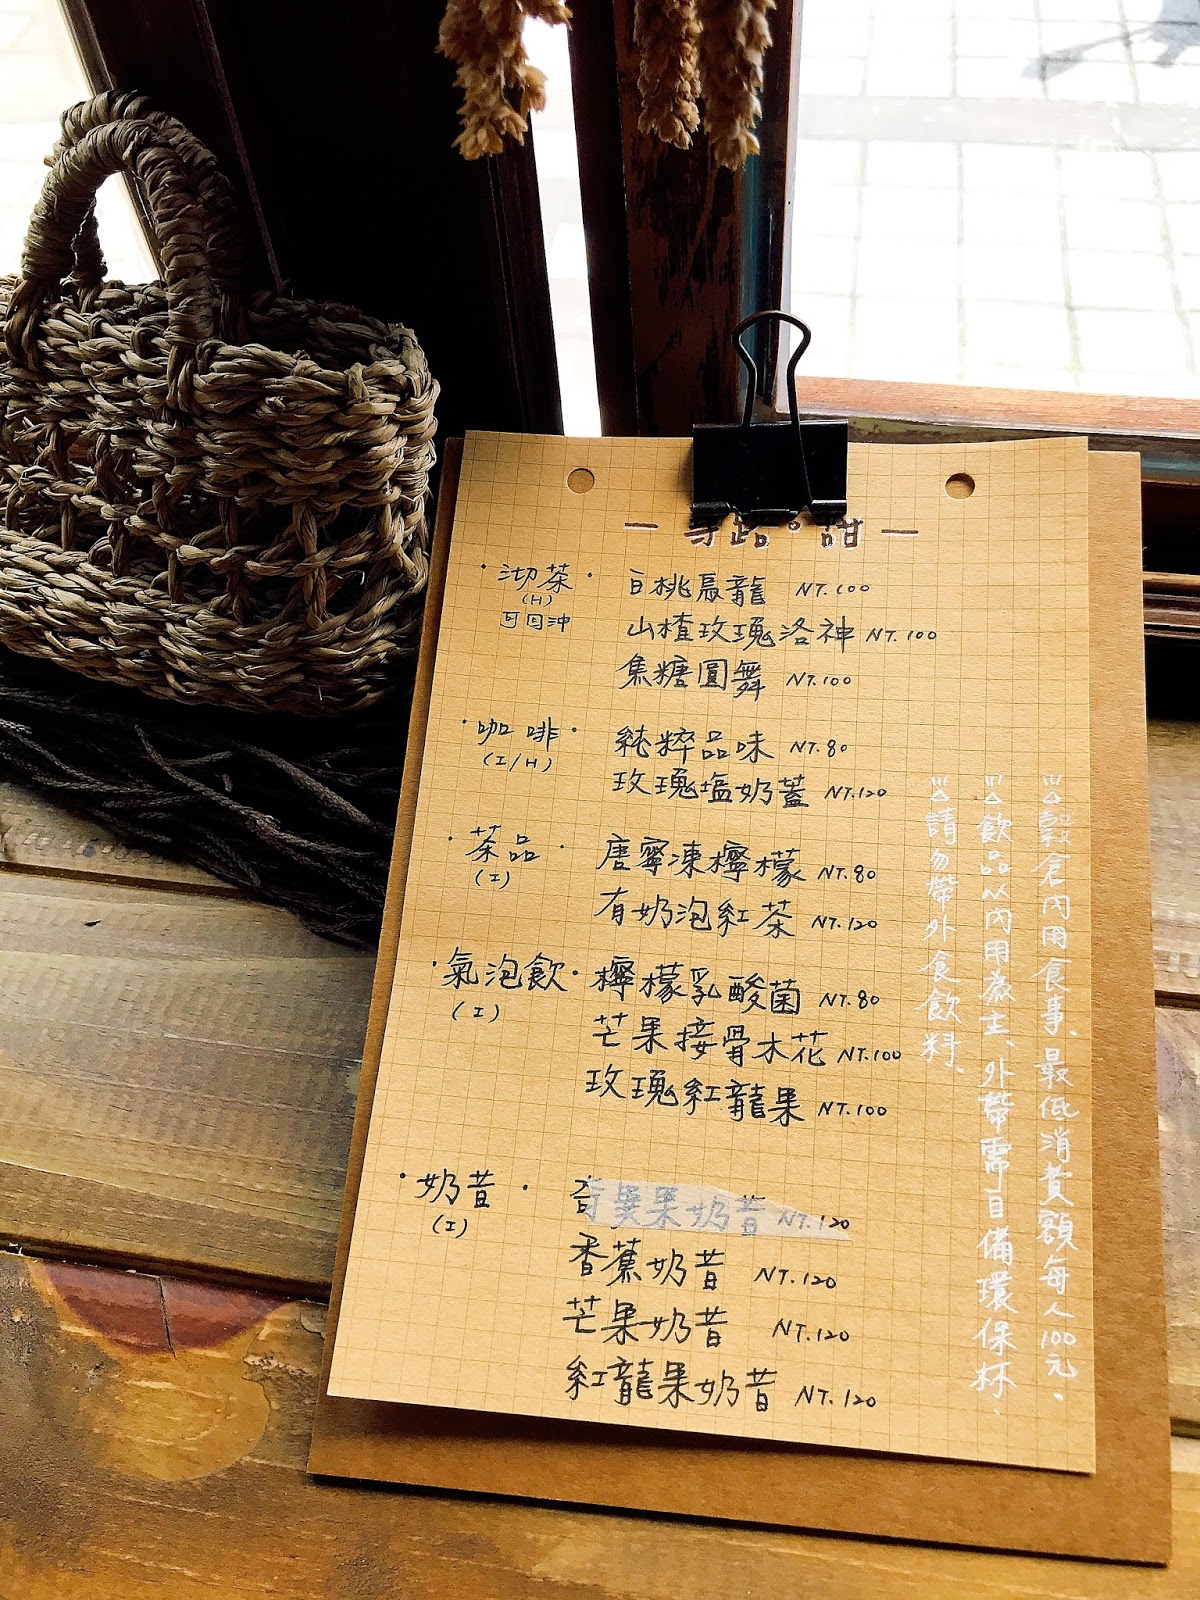 一 尋路。甜 一
·沏茶· 白桃烏龍 NT.100
(H) 可回沖 山楂玫瑰洛神 NT.100
焦糖圓舞 NT.100
·咖啡· 純粹品味 NT.80
(I/H) 玫瑰塩奶蓋 NT.120
·茶品· 唐寧凍檸檬 NT.80
(I) 有奶泡紅茶 NT.120
·氣泡飲· 檸檬乳酸菌 NT.80
(I) 芒果接骨木花 NT.100
玫瑰紅龍果 NT.100
·奶昔· 奇異果奶昔 NT.120
(I) 香蕉奶昔 NT.120
芒果奶昔 NT.120
紅龍果奶昔 NT.120
穀倉內用食事、最低消費額每人100元、
飲品以內用為主、外帶需自備環保杯、
請勿帶外食飲料、